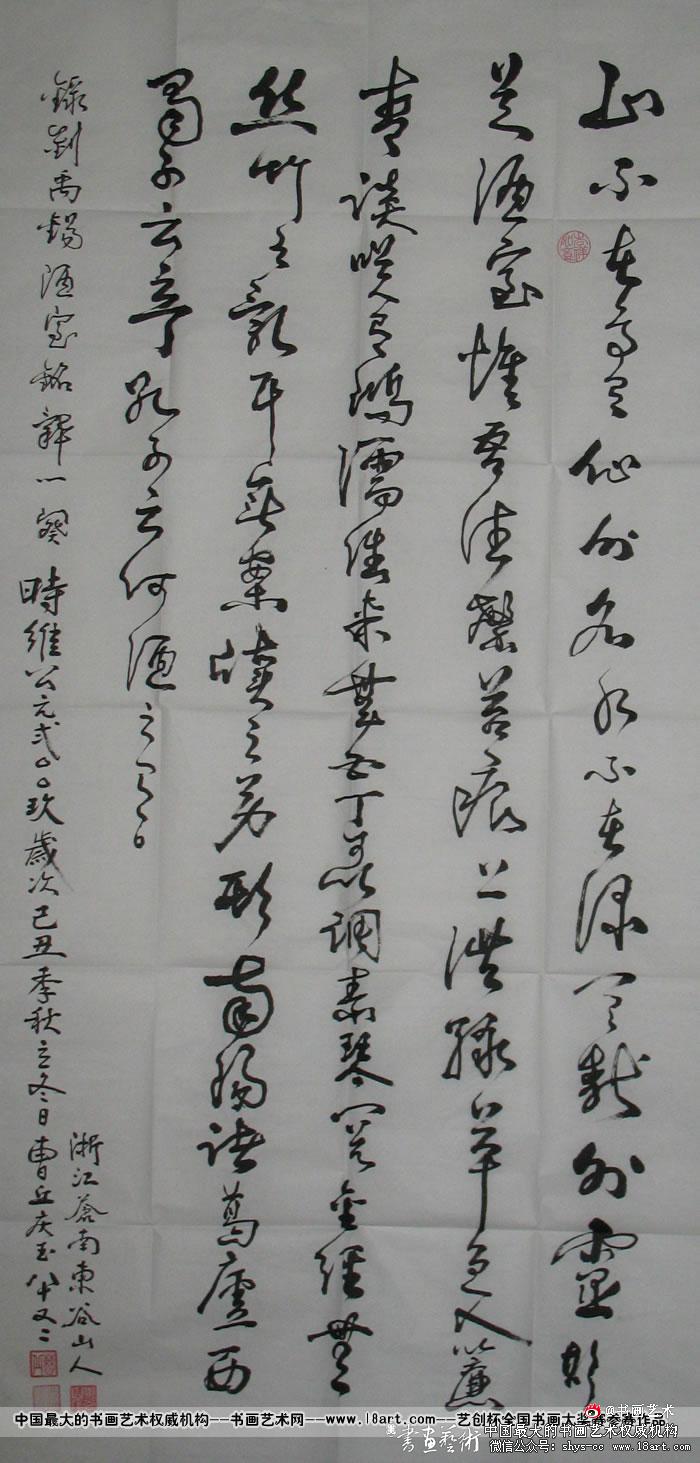 山不在高有仙则名水不在深有龍则靈斯
是陋室惟吾德馨苔痕上階緑草色入簾
青談笑有鴻儒往来無白丁可以調素琴閱金經無
丝竹之亂耳無案牘之劳形南陽諸葛廬西
蜀子云亭孔子云何陋之有
錄劉禹錫陋室銘辭一闋 時維公元弍〇〇玖歲次己丑季秋立冬日曹丘庆玉八十又二
浙江蒼南東谷山人
@书画艺术
中国最大的书画艺术权威机构--书画艺术网--www.18art.com--艺创杯全国书画大奖赛参赛作品
書画藝術
中国最大的书画艺术权威机构
微信公众号：shys-cc www.18art.com